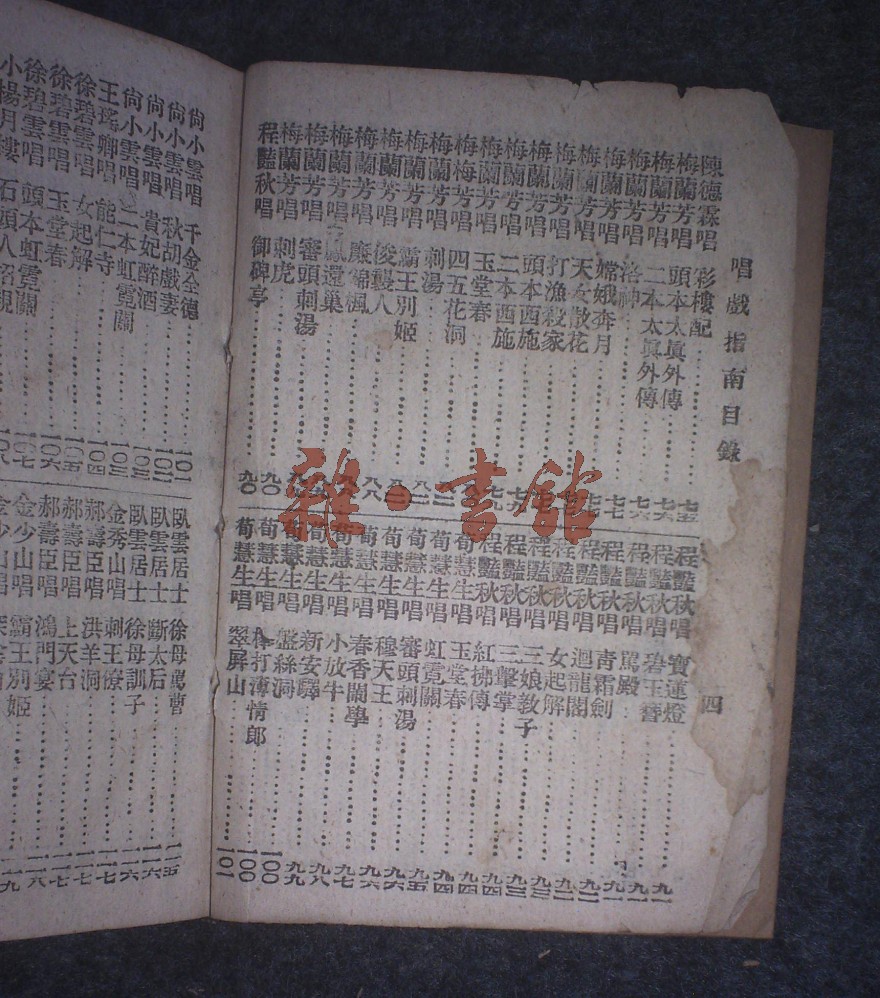 唱戲指南目錄
四
陳德霖唱 彩樓配
梅蘭芳唱 頭本太眞外傳
梅蘭芳唱 二本太眞外傳
梅蘭芳唱 洛神
梅蘭芳唱 嫦娥奔月
梅蘭芳唱 天女散花
梅蘭芳唱 打漁殺家
梅蘭芳唱 頭本西施
梅蘭芳唱 二本西施
梅蘭芳唱 玉堂春
梅蘭芳唱 四五花洞
梅蘭芳唱 刺湯
梅蘭芳唱 霸王別姬
梅蘭芳唱 俊襲人
梅蘭芳唱
梅蘭芳唱 鳳還巢
梅蘭芳唱 審頭刺湯
梅蘭芳唱 刺虎
程豔秋唱 御碑亭 九〇
程豔秋唱 寶蓮燈 九一
程豔秋唱 碧玉簪
程豔秋唱 罵殿
程豔秋唱 靑霜劍
程豔秋唱 迴龍閣
程豔秋唱 女起解
程豔秋唱 三娘敎子 九三
程豔秋唱 三擊掌 九四
程豔秋唱 紅拂傳 九四
荀慧生唱 玉堂春 九四
荀慧生唱 虹霓關
荀慧生唱 審頭刺湯 九六
荀慧生唱 穆天王 九六
荀慧生唱 春香鬧學 九七
荀慧生唱 小放牛 九七
荀慧生唱 新安驛 九八
荀慧生唱 盤絲洞 九九
荀慧生唱 棒打薄情郎 一〇〇
荀慧生唱 翠屏山 一〇一
尙小雲唱 千金全德 一〇一
尙小雲唱 秋胡戲妻
尙小雲唱 貴妃醉酒
尙小雲唱 二本虹霓關 一〇三
王瑤卿唱 能仁寺 一〇四
徐碧雲唱 女起解 一〇五
徐碧雲唱 玉堂春 一〇六
徐碧雲唱 頭本虹霓關 一〇七
小楊月樓 石頭人招親
臥雲居士 徐母罵曹 一一五
臥雲居士 斷太后 一一六
臥雲居士 徐母訓子 一一六
金秀山唱 刺王僚
郝壽臣唱 洪羊洞 一一七
郝壽臣唱 上天台 一一七
郝壽臣唱 鴻門宴 一一八
金少山唱 霸王別姬
金少山唱
雅·書館